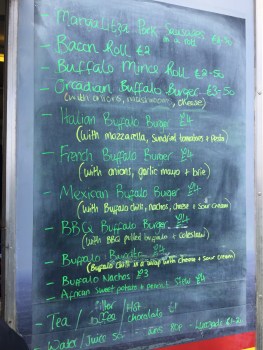 - Mangalitza Pork Sausages
in a roll
- Bacon Roll £2
- Buffalo Mince Roll £2-50
- Orcadian Buffalo Burger £3-50
(with onions, mushrooms, cheese)
- Italian Buffalo Burger £4
(with mozzarella, sundried tomatoes + Pesto)
- French Buffalo Burger £4
(with onions, garlic mayo + brie)
- Mexican Buffalo Burger £4
(with Buffalo chilli, nachos, cheese + Sour Cream)
- BBQ Buffalo Burger £4
(with BBQ pulled buffalo + coleslaw)
- Buffalo
(Buffalo chilli in a wrap with cheese + sour cream)
- Buffalo Nachos £3
- African Sweet potato + peanut Stew £4
- Tea / Filter Coffee / Hot Chocolate £1
- Water / Juice